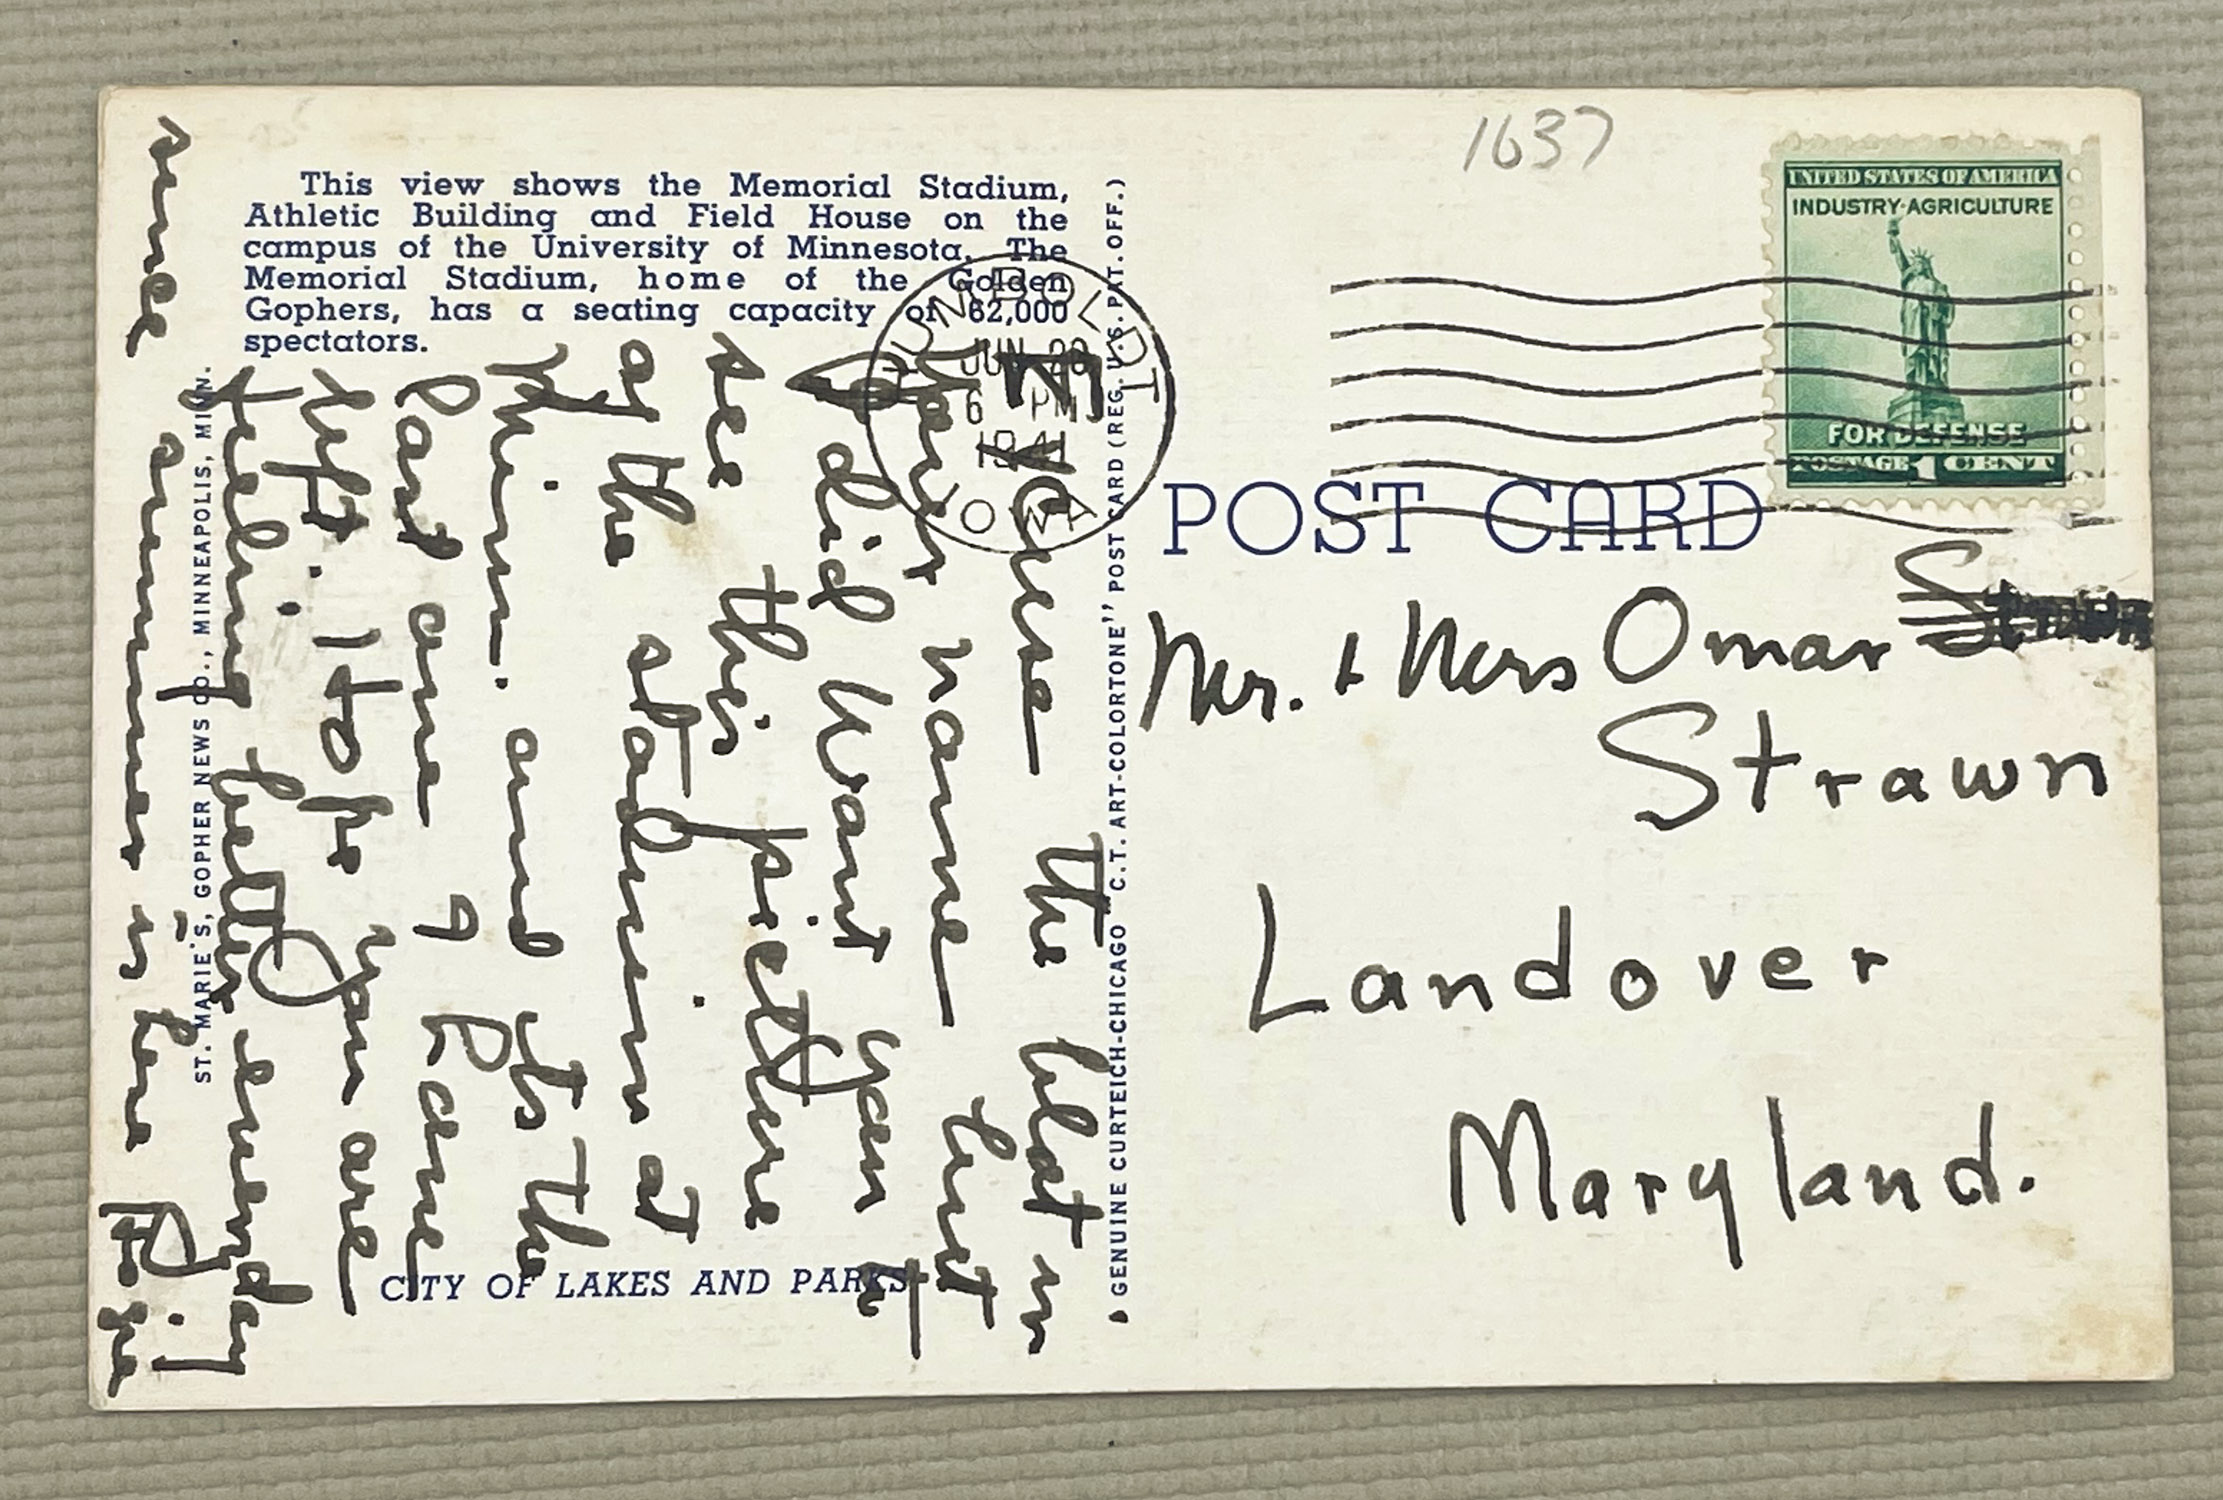 This view shows the Memorial Stadium,
Athletic Building and Field House on the
campus of the University of Minnesota. The
Memorial Stadium, home of the Golden
Gophers, has a seating capacity of 62,000
spectators.
Excuse the blot in
your name but
I did want you to
see this picture
of the stadium at
Minn. and its the
last one I have
left. I hope you are
feeling better everyday
since summer is here
ST. MARIE'S, GOPHER NEWS CO., MINNEAPOLIS, MINN.
CITY OF LAKES AND PARKS
GENUINE CURTEICH-CHICAGO "C.T. ART-COLORTONE" POST CARD (REG. U.S. PAT. OFF.)
HUMBOLDT
JUN
6 PM
1941
IOWA
1637
UNITED STATES OF AMERICA
INDUSTRY·AGRICULTURE
FOR DEFENSE
POSTAGE 1 CENT
POST CARD
Mr. + Mrs Omar
Strawn
Landover
Maryland.